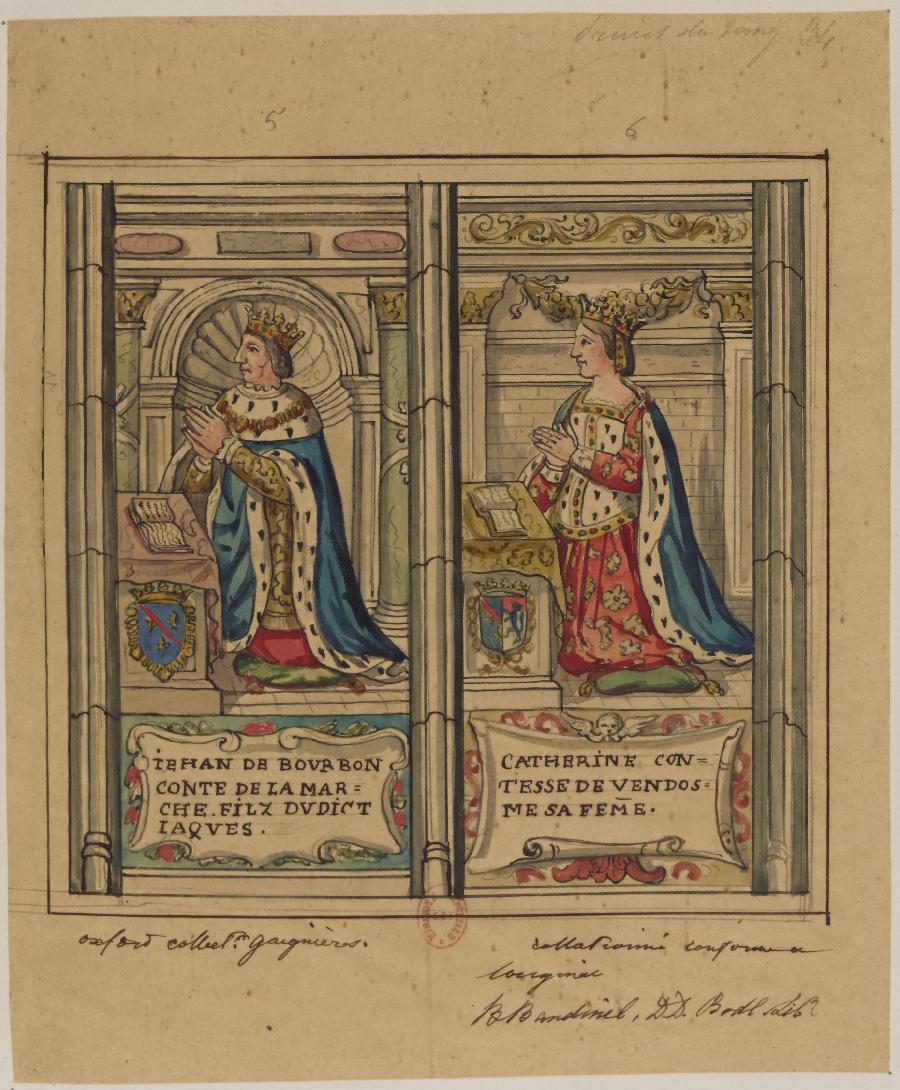 5
6
IEHAN DE BOVRBON
CONTE DE LA MAR=
CHE. FILZ DVDICT
IAQVES.
CATHERINE CON=
TESSE DE VENDOS=
ME SA FEM̄E.
oxford collect.on gaignières.
collationné conforme a
l'original
B Bandinel, D.D. Bodl Libn